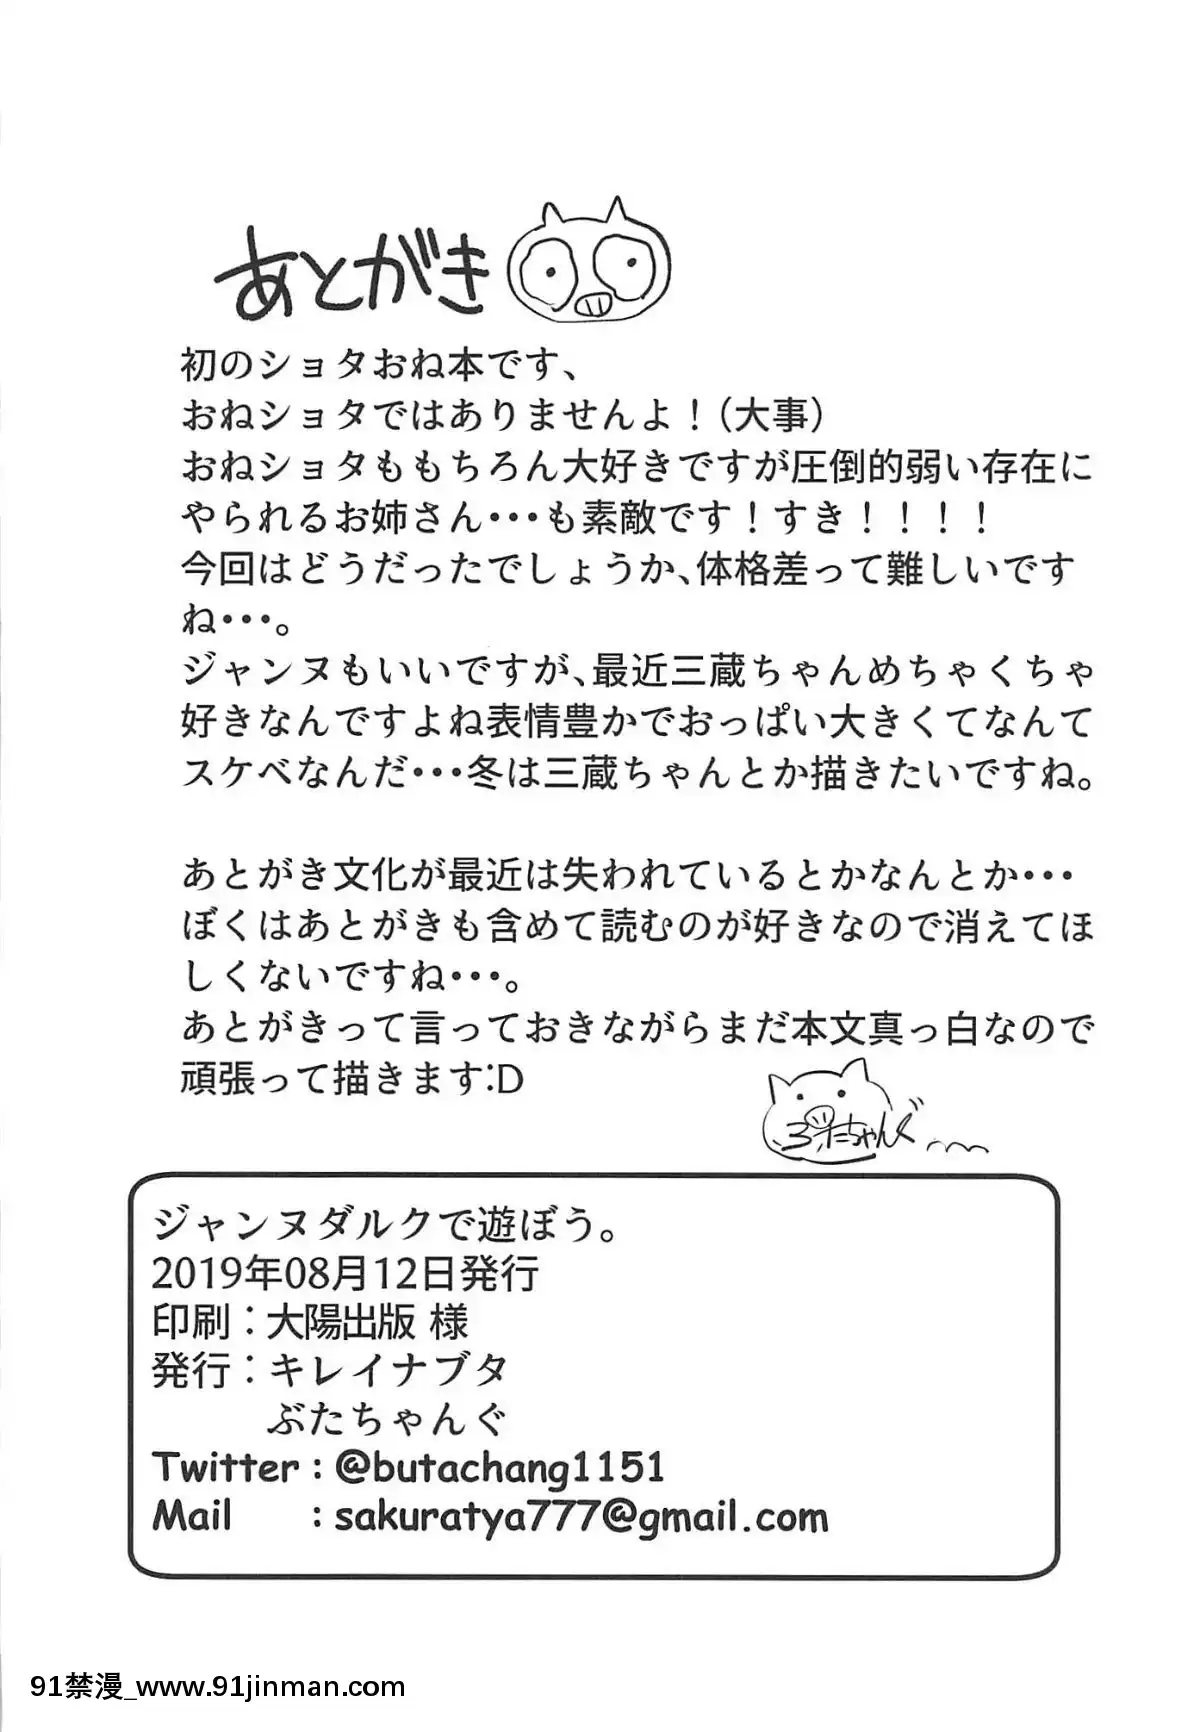 あとがき
初のショタおね本です、
おねショタではありませんよ！（大事）
おねショタももちろん大好きですが圧倒的弱い存在に
やられるお姉さん・・・も素敵です！すき！！！！
今回はどうだったでしょうか、体格差って難しいです
ね・・・。
ジャンヌもいいですが、最近三蔵ちゃんめちゃくちゃ
好きなんですよね表情豊かでおっぱい大きくてなんて
スケベなんだ・・・冬は三蔵ちゃんとか描きたいですね。
あとがき文化が最近は失われているとかなんとか・・・
ぼくはあとがきも含めて読むのが好きなので消えてほ
しくないですね・・・。
あとがきって言っておきながらまだ本文真っ白なので
頑張って描きます:D
ぶたちゃんぐ
ジャンヌダルクで遊ぼう。
2019年08月12日発行
印刷：大陽出版 様
発行：キレイナブタ
ぶたちゃんぐ
Twitter : @butachang1151
Mail : sakuratya777@gmail.com
91禁漫_www.91jinman.com